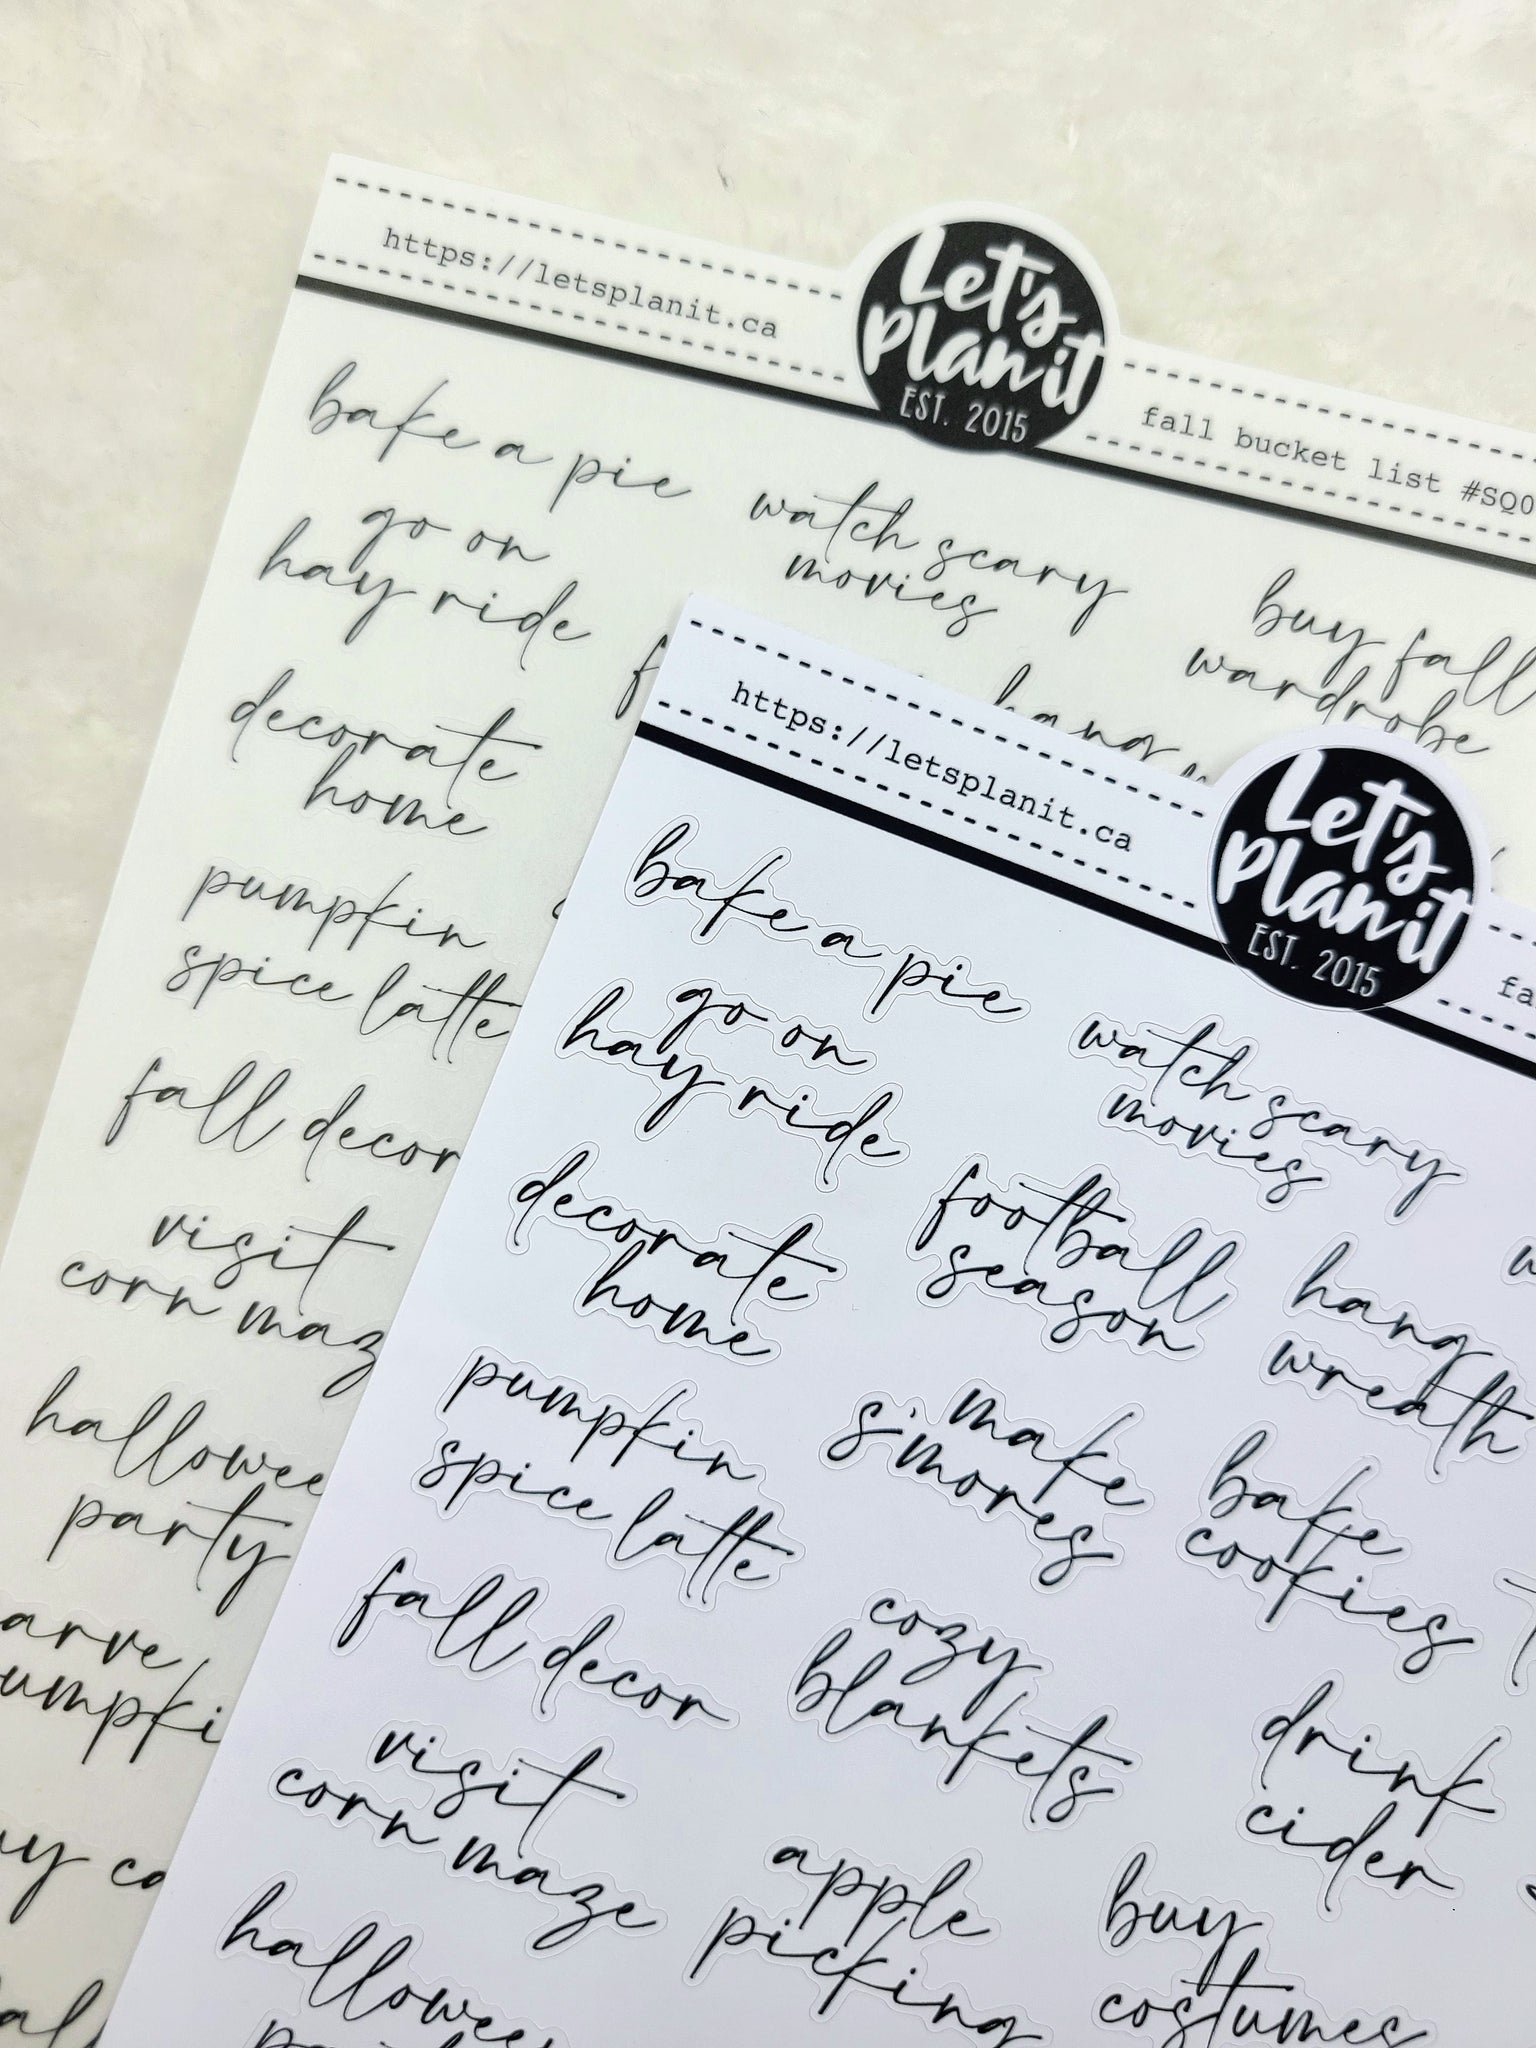 https://letsplanit.ca
Let's
Plan it
EST. 2015
fall bucket list #SQ0
bake a pie
go on
hay ride
watch scary
movies
buy fall
wardrobe
hang
decorate
home
pumpkin
spice latte
fall decor
visit
corn maz
hallowee
party
arve
umpki
y co
al
https://letsplanit.ca
Let's
Plan it
EST. 2015
fa
bake a pie
go on
hay ride
watch scary
movies
decorate
home
football
season
hang
wreath
pumpkin
spice latte
make
s'mores
bake
cookies
fall decor
cozy
blankets
drink
cider
visit
corn maze
apple
picking
buy
costumes
halloween